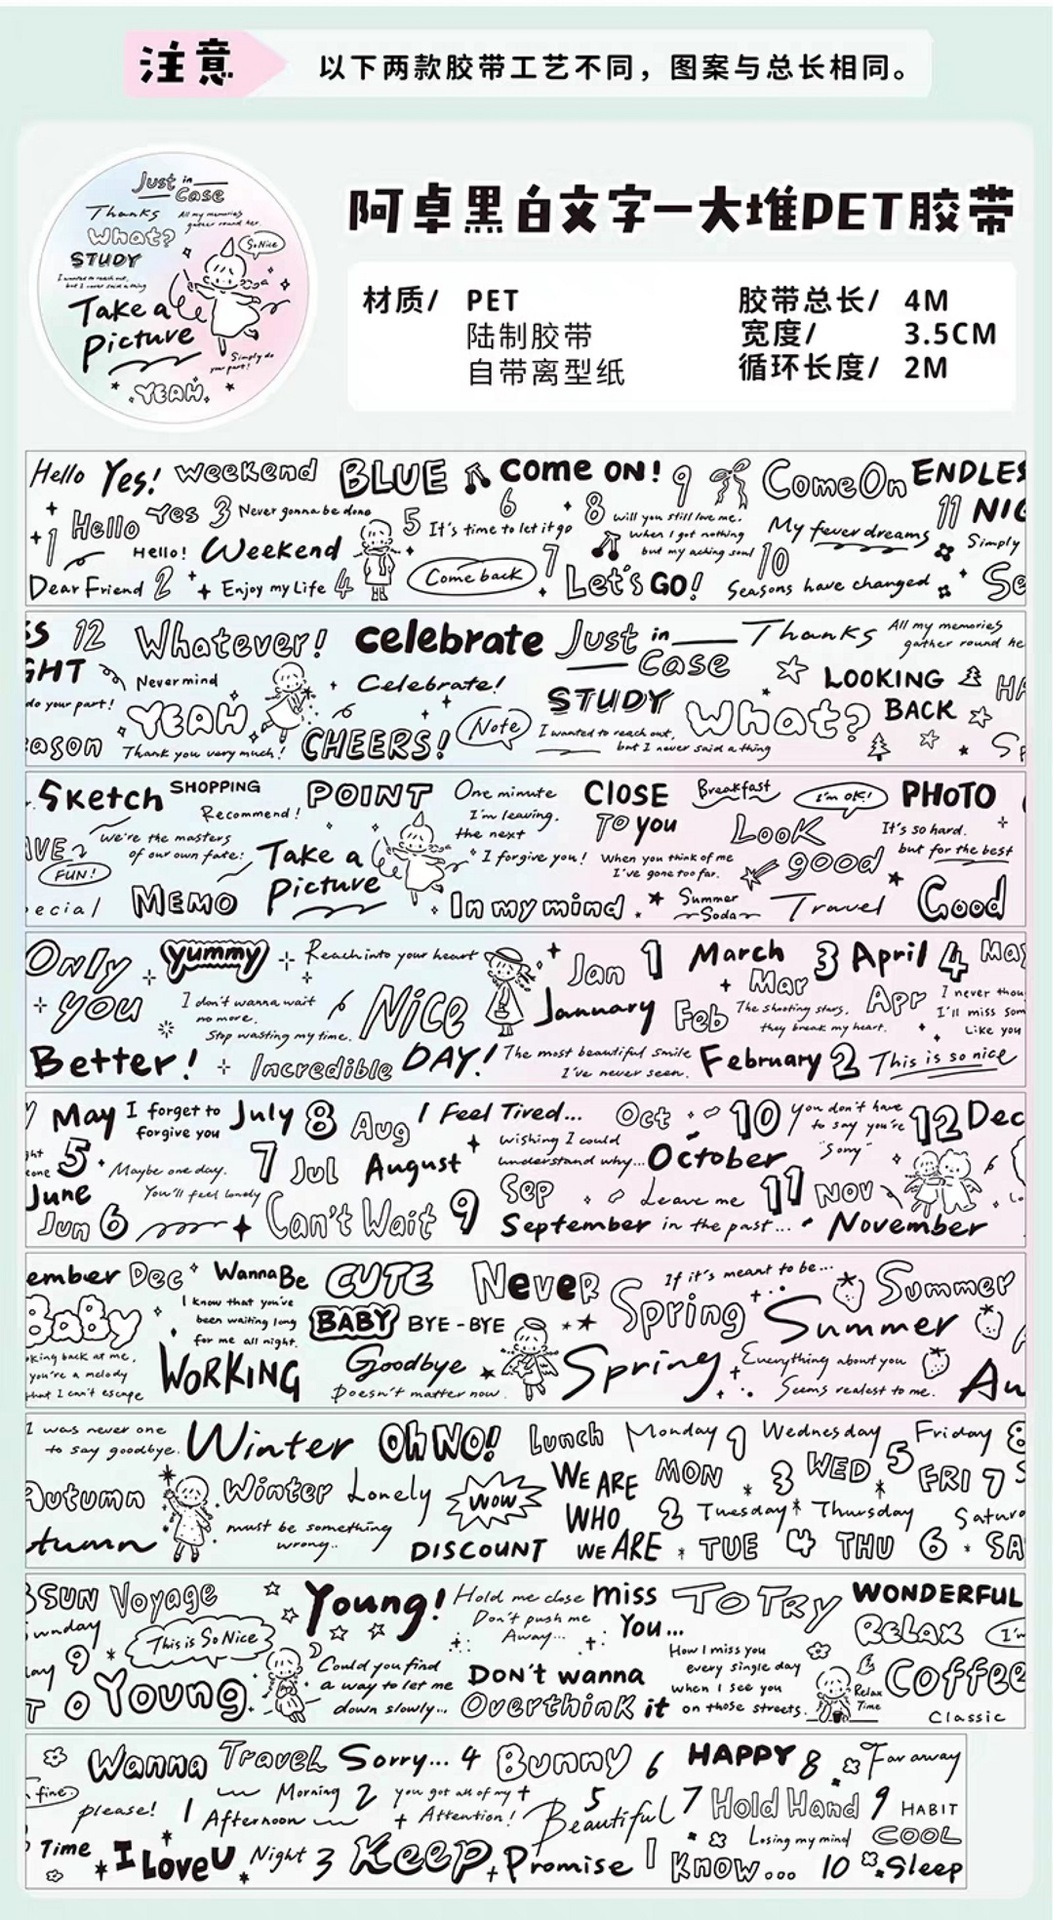 注意
以下两款胶带工艺不同，图案与总长相同。
Just in
Case
Thanks All my memories
gather round her
What?
So Nice
STUDY
I wanted to reach out,
but I never said a thing
Take a
Picture
Simply do
your part!
YEAH
阿卓黑白文字一大堆PET胶带
材质/ PET
陆制胶带
自带离型纸
胶带总长/ 4M
宽度/ 3.5CM
循环长度/ 2M
Hello Yes! weekend BLUE Come ON! 9 ComeOn ENDLES
1 Hello Yes 3 Never gonna be done 5 6 8 will you still love me. 11 NIG
It's time to let it go when I got nothing My fever dreams Simply
Hello! Weekend but my aching soul 10
Dear Friend 2 Enjoy my Life 4 Come back 7 Let's GO! Seasons have changed Se
S 12 Whatever! celebrate Just in Thanks All my memories
Case gather round he
GHT Never mind Celebrate! LOOKING HA
do your part! YEAH STUDY What? BACK
Note I wanted to reach out,
ason Thank you very much! CHEERS! but I never said a thing Sp
Sketch SHOPPING POINT One minute Close Breakfast I'm OK! PHOTO
Recommend! I'm leaving. TO you LOOK It's so hard.
AVE we're the masters the next but for the best
of our own fate: Take a I forgive you! When you think of me good
FUN! I've gone too far.
ecial MEMO Picture In my mind Summer Travel Good
Soda
Only yummy Reach into your heart Jan 1 March 3 April 4 May
you I don't wanna wait Nice Mar
no more. January Feb The shooting stars, Apr I never thou
Stop wasting my time. they break my heart. I'll miss som
Like you
Better! Incredible DAY! The most beautiful smile February 2 This is so nice
I've never seen.
y May I forget to July 8 Aug I Feel Tired... Oct 10 You don't have 12 Dec
forgive you wishing I could to say you're
5 Maybe one day. 7 Jul August understand why... October "Sorry"
June You'll feel lonely Sep Leave me 11 Nov
Jun 6 Can't Wait 9 September in the past... November
ember Dec WannaBe CUTE Never If it's meant to be... Summer
BaBy I know that you've BABY BYE-BYE Spring Summer
been waiting long
for me all night.
king back at me, WORKING Goodbye Spring Everything about you
you're a melody Doesn't matter now. Seems realest to me. Au
that I can't escape
I was never one Winter Oh NO! Lunch Monday 1 Wednesday Friday 8
to say goodbye. 5
Autumn Winter Lonely WOW WE ARE MON 3 WED FRI 7 S
must be something WHO 2 Tuesday Thursday Satura
tumn wrong.. DISCOUNT WE ARE TUE 4 THU 6 SA
SUN Voyage Young! Hold me close miss TO TRY WONDERFUL
unday This is So Nice Don't push me You... RELAX I'm
Away... How I miss you
ay 9 Could you find Don't wanna every single day Coffee
T 0 Young a way to let me when I see you Relax
down slowly... Overthink it on those streets. Time Classic
Wanna Travel Sorry... 4 Bunny 6 HAPPY 8 Far away
fine. Morning 2 you got all of my 5 7 Hold Hand 9 HABIT
please! 1 Afternoon Attention! Beautiful Losing my mind COOL
Time I Love U Night 3 Keep Promise I Know... 10 Sleep